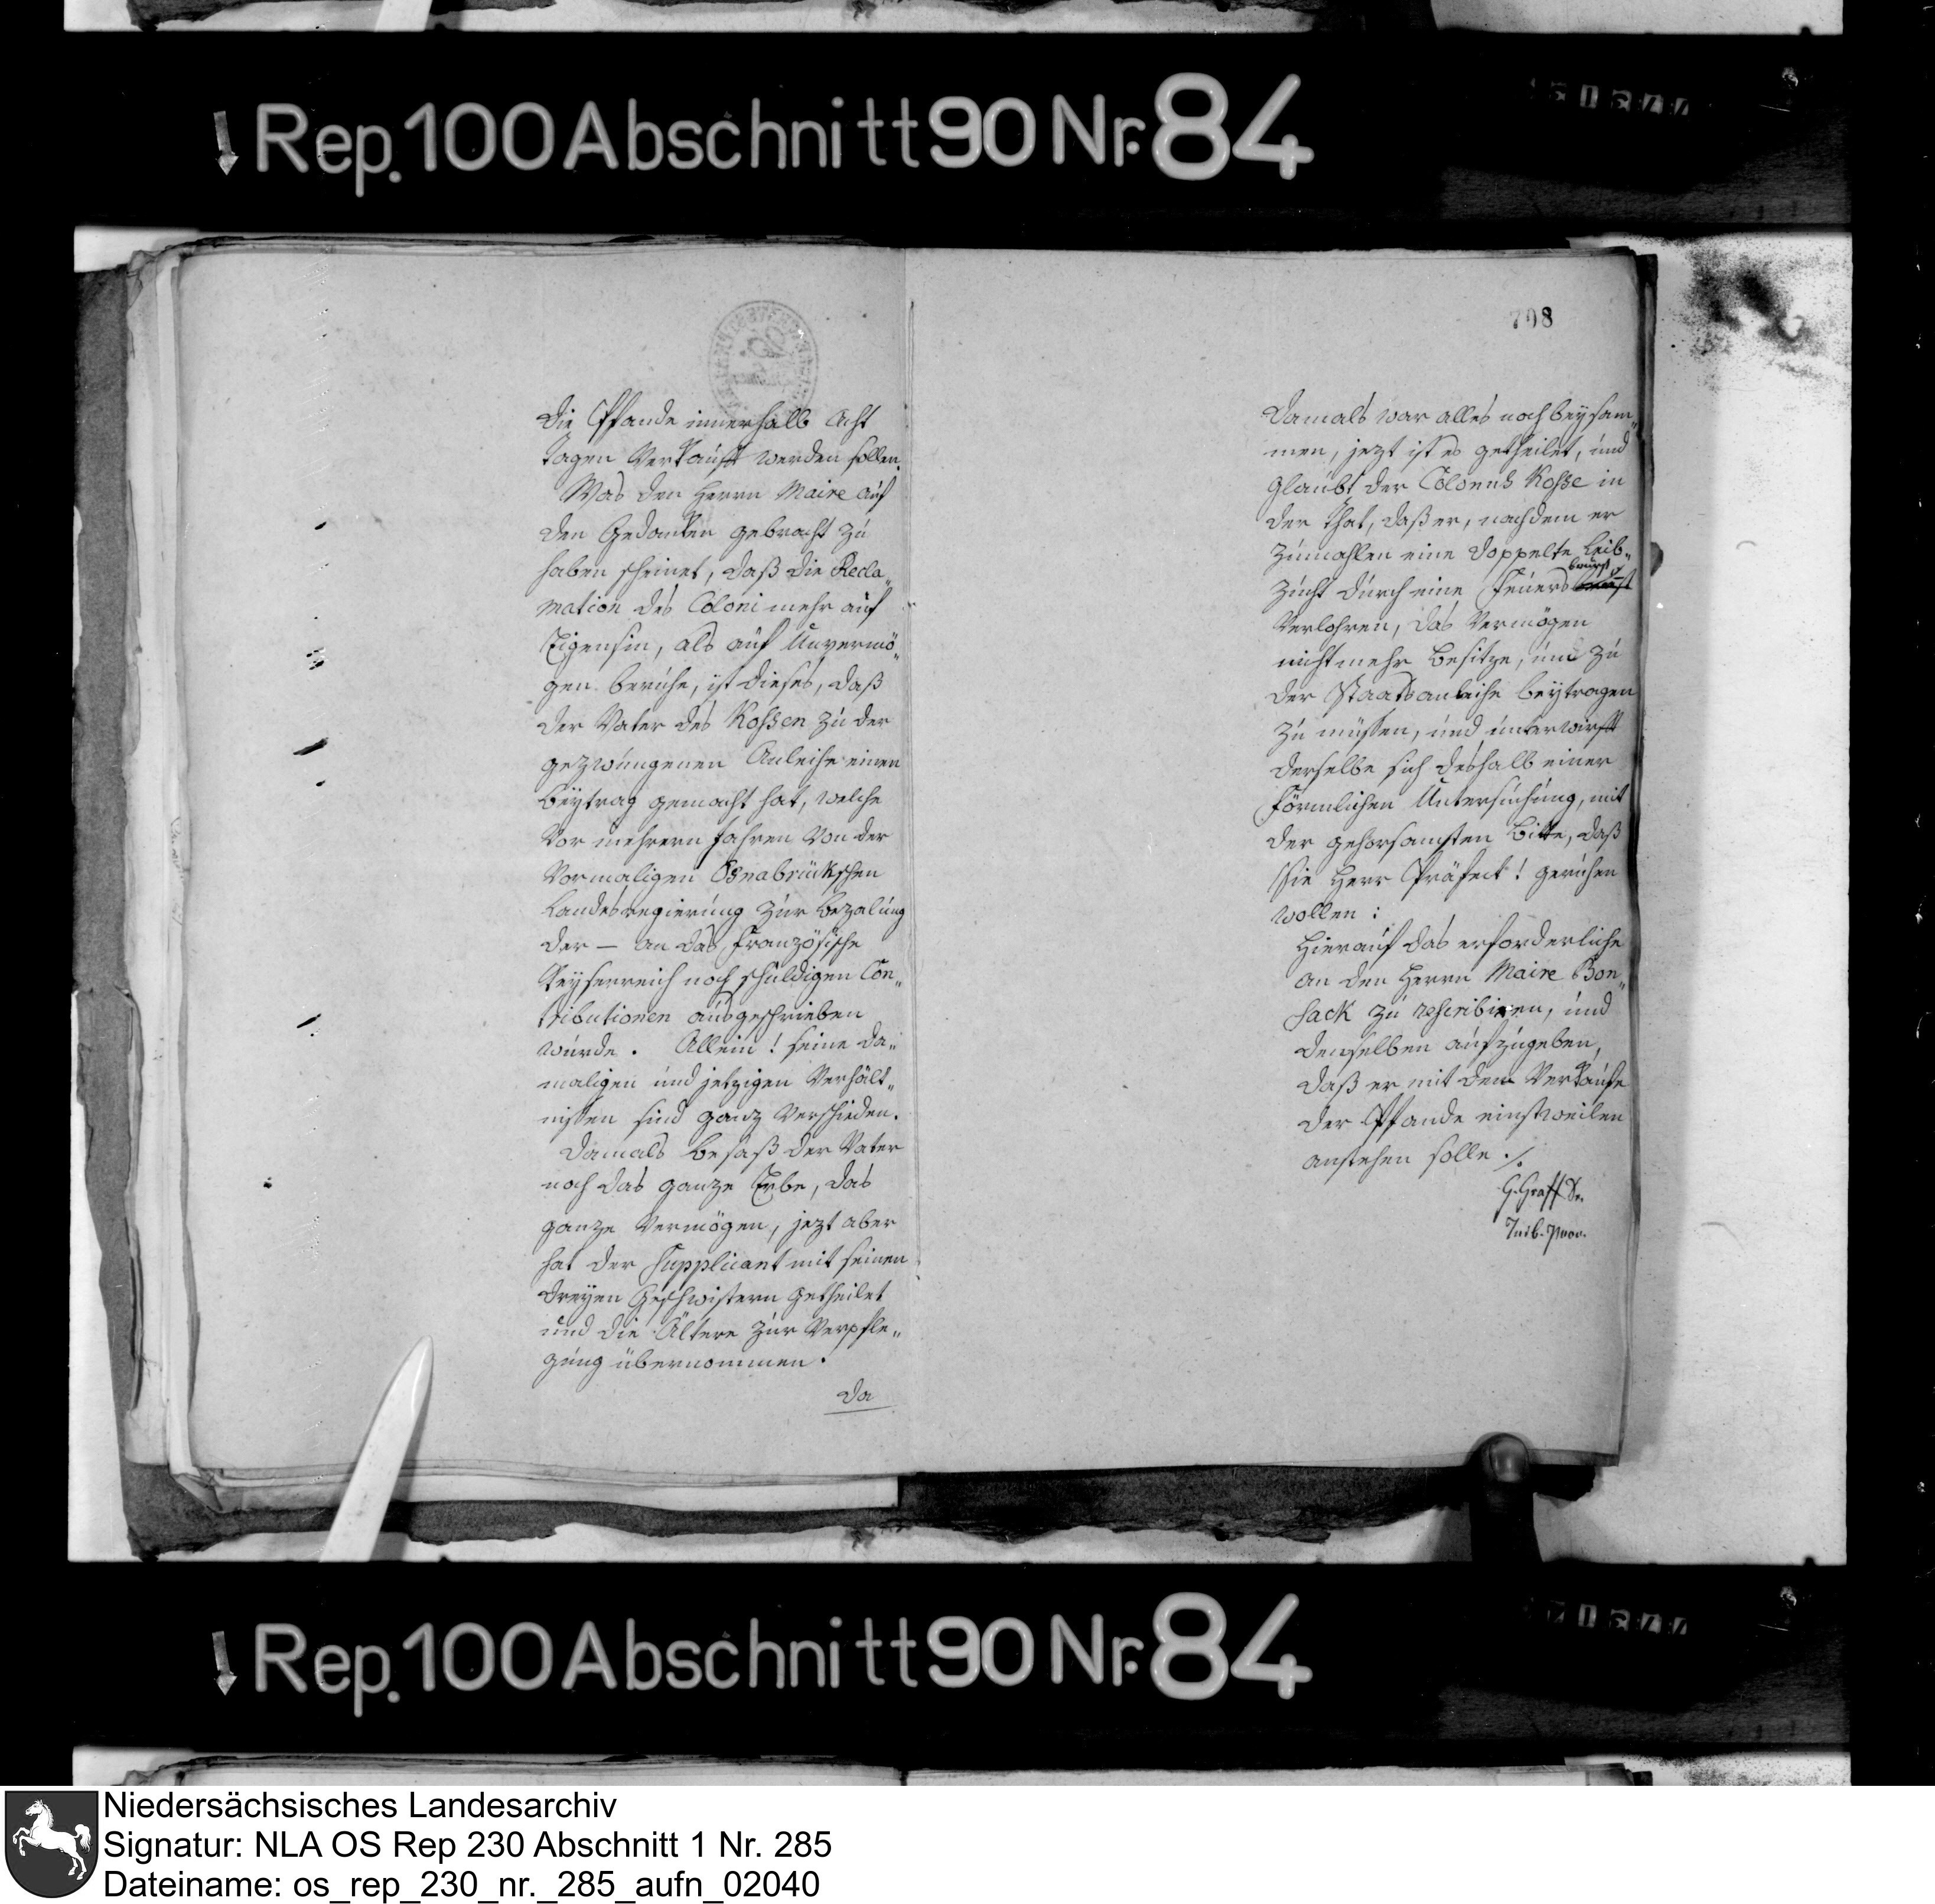 Rep. 100 Abschnitt 90 Nr. 84
die Pfande innerhalb acht
tagen verkauft werden sollen.
Was den Herrn Maire auf
den Gedanken gebracht zu
haben scheinet, daß die Recla„
mation des Coloni mehr auf
Eigensin, als auf Unvermö„
gen beruhe, ist dieses, daß
der Vater des Kossen zu der
gezwungenen Anleihe einen
Beytrag gemacht hat, welche
vor mehrern Jahren von der
vormaligen Osnabrückschen
Landesregierung zur Bezalung
der — an das französische
Keyserreich noch schuldigen Con„
tributionen ausgeschrieben
wurde. Allein! seine da„
maligen und jetzigen Verhält„
nissen sind ganz verschieden.
Damals besaß der Vater
noch das ganze Erbe, das
ganze Vermögen, jezt aber
hat der Supplicant mit seinen
dreyen Geschwistern getheilet
und die Ältere zur Verpfle„
gung übernommen.
Da
708
Damals war alles noch beysam„
men, jezt ist es getheilet, und
glaubt der Colonus Kosse in
der That, daß er, nachdem er
zumahlen eine doppelte Leib„
zucht durch eine Feuersbrunst
verlohren, das Vermögen
nicht mehr besitze, um zu
der Staatsanleihe beytragen
zu müssen, und unterwirft
derselbe sich deshalb einer
förmlichen Untersuchung, mit
der gehorsamsten Bitte, daß
Sie Herr Präfect! geruhen
wollen:
Hierauf das erforderliche
an den Herrn Maire Bon„
sack zu rescribiren, und
demselben aufzugeben,
daß er mit dem Verkaufe
der Pfande einstweilen
anstehen solle ./.
G. Graff Dr.
Trib. Proc.
Rep. 100 Abschnitt 90 Nr. 84
Niedersächsisches Landesarchiv
Signatur: NLA OS Rep 230 Abschnitt 1 Nr. 285
Dateiname: os_rep_230_nr._285_aufn_02040